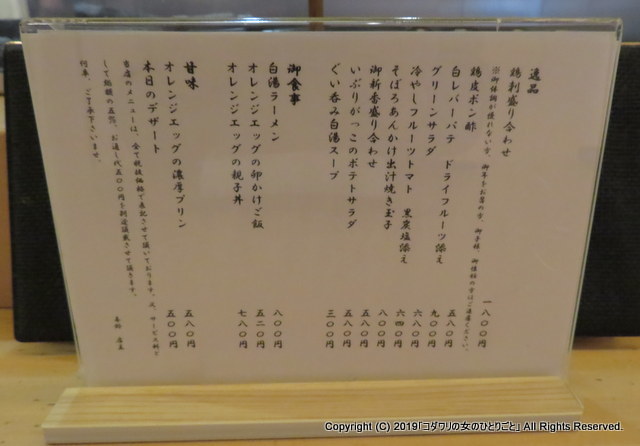 逸品
鶏刺盛り合わせ 一八〇〇円
鶏皮ポン酢 五八〇円
白レバーパテ ドライフルーツ添え 九〇〇円
グリーンサラダ 六八〇円
冷やしフルーツトマト 黒薬塩添え 六四〇円
そぼろあんかけ出汁焼き玉子 八〇〇円
御新香盛り合わせ 五八〇円
いぶりがっこのポテトサラダ 五八〇円
ぐい呑み白湯スープ 三〇〇円
御食事
白湯ラーメン 八〇〇円
オレンジエッグの卵かけご飯 五二〇円
オレンジエッグの親子丼 七八〇円
甘味
オレンジエッグの濃厚プリン 五八〇円
本日のデザート 五〇〇円
当店のメニューは、全て税抜価格で表記させて頂いております。又、サービス料と
して総額の五%、お通し代五〇〇円を別途頂戴させて頂きます。
何卒、ご了承下さいませ。
店主
Copyright (C) 2019「コダワリの女のひとりごと」 All Rights Reserved.